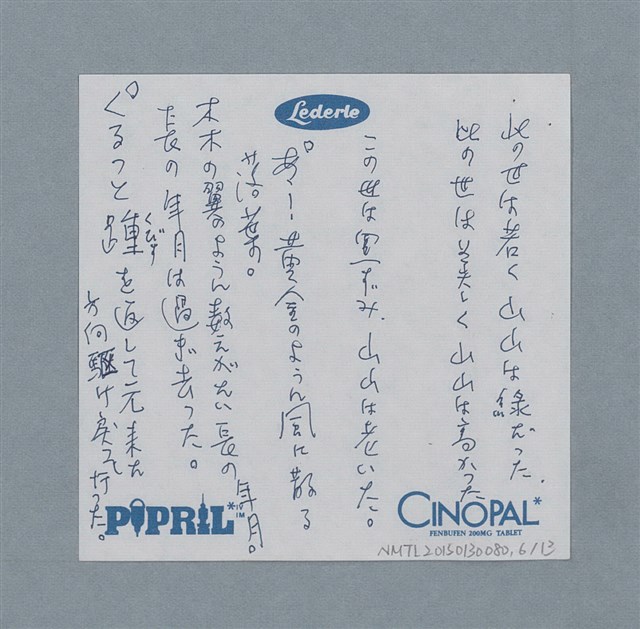 Lederle
此の世は若く 山山は緑だった.
此の世は美しく 山山は高かった
この世は黒ずみ. 山山は老いた。
あゝ! 黄金のように風に散る
落葉の。
木木の翼のように数えがたい長の年月。
長の年月は過ぎ去った。
ぐるっと踵を返して元来た
くびす
方向駆け戻って行った。
PIPRIL*TM
CINOPAL*
FENBUFEN 200MG TABLET
NMTL20150130080, 6/13